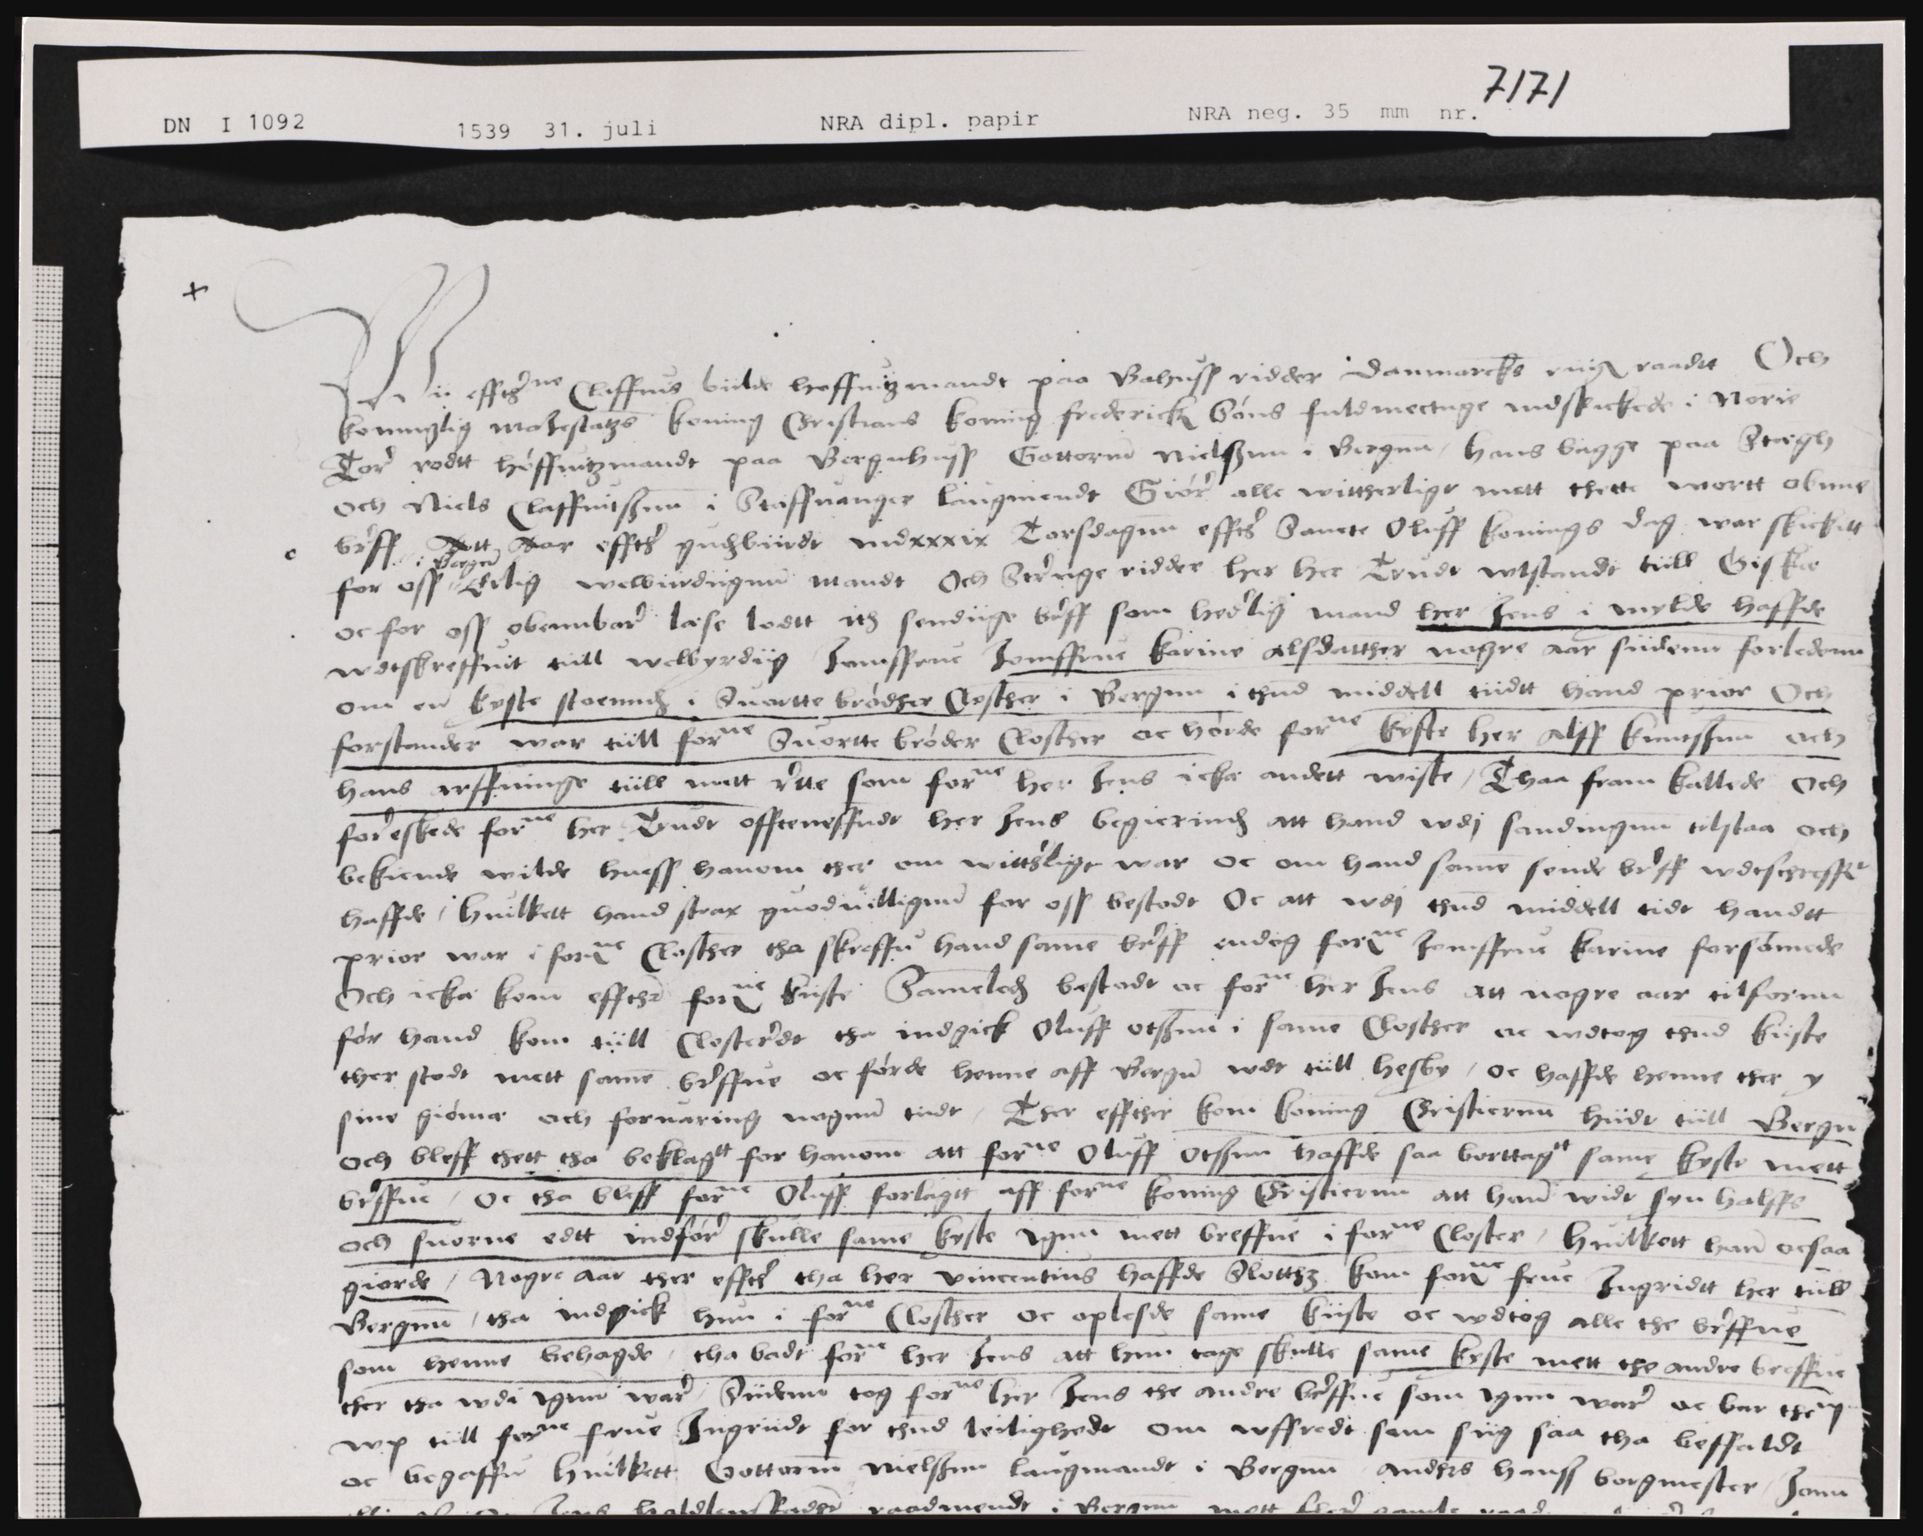 7171
DN I 1092 1539 31. juli NRA dipl. papir NRA neg. 35 mm nr.
Wii effthne Claffuus biilde høffuitzmandt paa Bahuss ridder Danmarcks riigis raadtt Och
koninglig maiestatzs koning Cristians koning frederickis søns fuldmectuge indskickede i Norie
Tord rodtt høffuitzmandt paa Bergnhuss Gottorm nielssun i Bergnn, hans bagge paa Steegh
och Niels Claffuitssnn i Staffuanger laugmendt Giør alle wittherligt mett thette wortt obnne
breff Att Aar effther gudzbiirdt mdxxxix Torsdagnn effther Sancte Oluff konings dag war skickitt
for oss i Bergen Erlig welbiirdiignn mandt Och Strenge ridder her her Trudt wlstandt tiill Giske
oc for oss obennbar læse lodtt ith sendiige breff som hederlig mand her Jens i mylde haffde
wdtskreffuit tiill welbyrdiig Jomffrue Jomffrue karine alfsdatther nogre aar siidenn forledenn
om en kyste stoenndis i Suortte brødher Closther i Bergnn i thnd middell tiidtt hand prior Och
forstander war tiill forne Suortte brøder Closther oc hørde forne kyste her alff knutssnn och
hans arffuinge tiill mett rette som forne her Jens icke andett wiste, Thaa fram kallede Och
foreskede forne her Trudt offteneffndt her Jens begierindis att hand wdj sandingnn tilstaa och
bekiende wilde huess hanom ther om wittherligt war oc om hand same sende breff wdtschreffuit
haffde, huilkett hand strax guoduillignn for oss bestodt Oc att wdj thnd middell tidt handtt
prior war i forne Closther tha skreffu hand same breff endog forne Jomffrue karine forsømede
Och icke kom effther forne kiiste Sameledis bestodt oc forne her Jens att nogre aar tilfornn
før hand kom tiill Closteredt tha indgick Oluff otssnn i same Closther oc wdtog thnd kiiste
ther stodt mett same breffue oc førde henne aff Bergnn wdt tiill hesby, oc haffde henne ther y
sine giøme och foruaring nognn tiidt, Ther effther kom koning Cristiernn hiidt tiill Bergnn
och bleff thett tha beklagtt for hanom att forne Oluff Otssnn haffde saa borttagtt same kyste mett
breffue, Oc tha bleff forne Oluff forlagtt aff forne koning Cristiernn att hand widt syn halss
och suorne edtt indføre skulle same kyste ignn mett breffue i forne Closter, huilkett hand ocsaa
giorde, Nogre aar ther effther tha her vincentius haffde Slotthz kom forne frue Ingridtt her tiill
Bergnn, tha indgick hun i forne Closther oc oplesde same kiiste oc wdtog alle the breffue
som henne behagde, tha badt forne her Jens att hun tage skulle same kyste mett the andre breffue
ther tha wdi ignn war, Siidenn tog forne her Jens the andre breffue som ignn war oc bar thenn
wp tiill forne frue Ingriidt for thnd leilighedt om uffredt som siig saa tha beffaldt
oc begaffu huilkett Gottorm nielssnn laugmandt i Bergnn Anders hanss borgmester, Jonn
Jens raadmendt i Bergnn mett